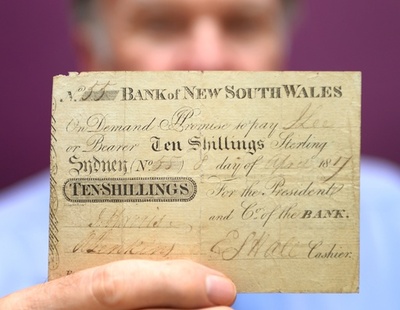 No. 55 BANK of NEW SOUTH WALES
On Demand I Promise to pay
or Bearer Ten Shillings Sterling
Sydney (No. 55) 8 day of April 1817
TEN SHILLINGS For the President
and Co. of the BANK.
Jenkins E S Hall Cashier.